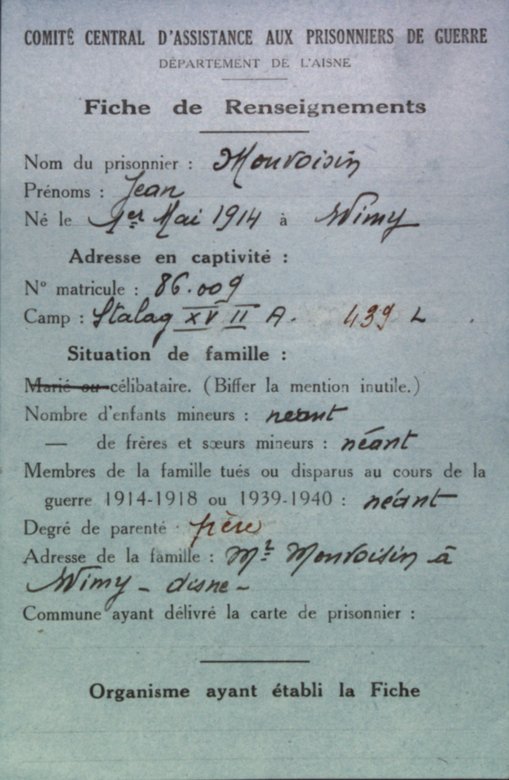 COMITÉ CENTRAL D'ASSISTANCE AUX PRISONNIERS DE GUERRE
DÉPARTEMENT DE L'AISNE
Fiche de Renseignements
Nom du prisonnier : Monvoisin
Prénoms : Jean
Né le 1er Mai 1914 à Wimy
Adresse en captivité :
N° matricule : 86.009
Camp : Stalag XVII A. 439 L
Situation de famille :
Marié ou célibataire. (Biffer la mention inutile.)
Nombre d'enfants mineurs : néant
— de frères et sœurs mineurs : néant
Membres de la famille tués ou disparus au cours de la
guerre 1914-1918 ou 1939-1940 : néant
Degré de parenté : frère
Adresse de la famille : Mr Monvoisin à
Wimy - Aisne -
Commune ayant délivré la carte de prisonnier :
Organisme ayant établi la Fiche